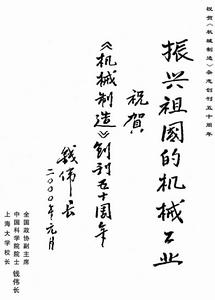 祝贺《机械制造》杂志创刊五十周年
振兴祖國的机械工业
祝賀
《机械制造》创刊五十周年
钱伟长
二000年元月
全国政协副主席
中国科学院院士 钱伟长
上海大学校长